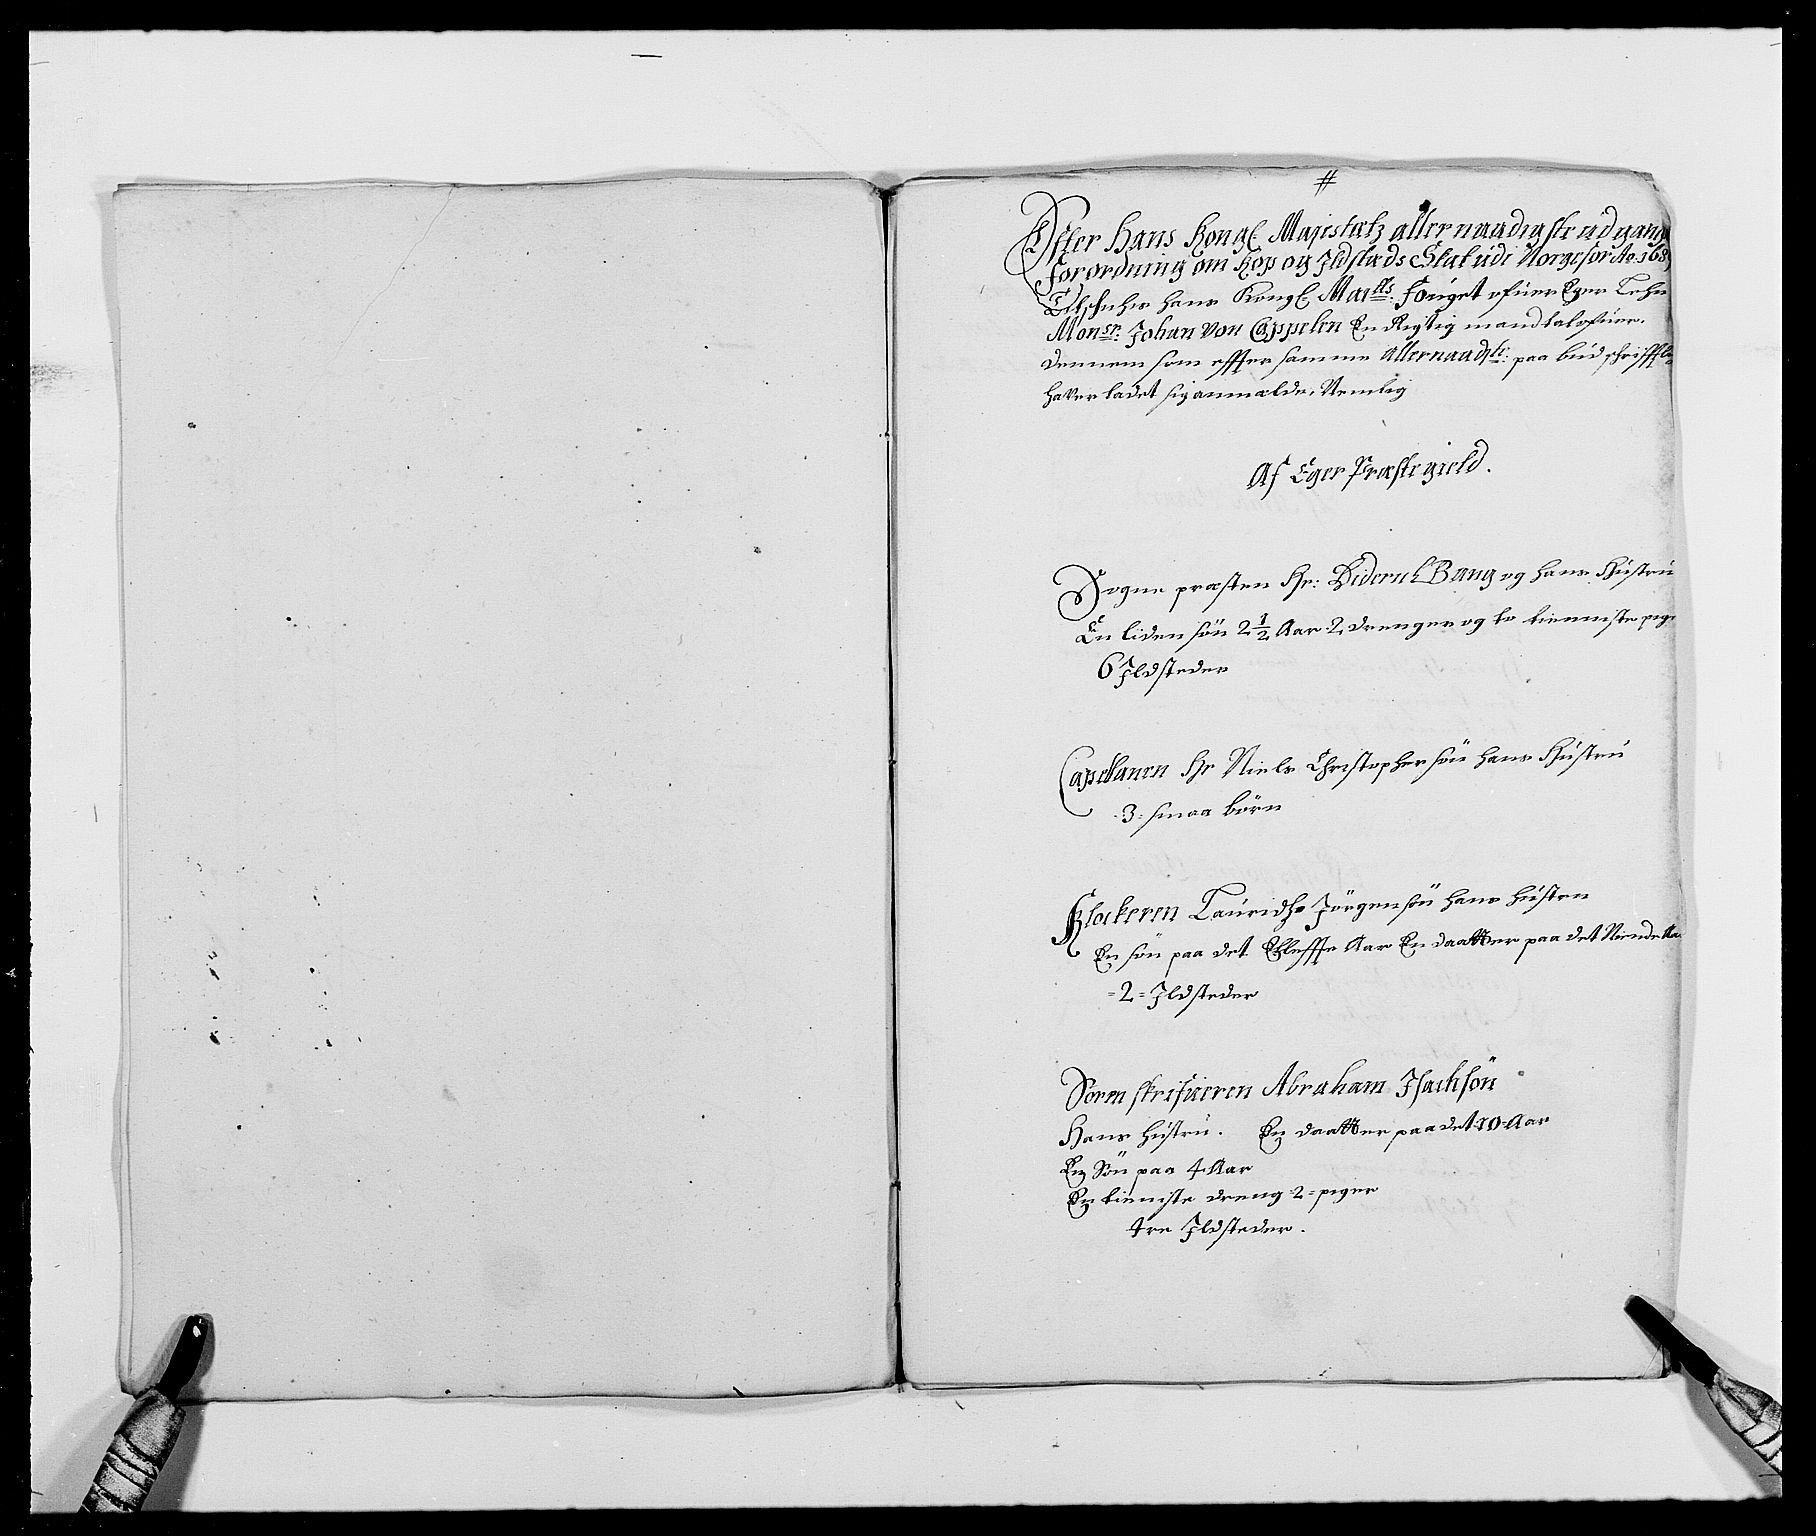 #
Efter Hans Kongl Majestætz allernaadigste udgangne
Forordning om Kop og Jldstæds Skat udi Norge for Ao. 168
Tilschr hans Kongl Maitts: Fouget ofuer Eger Lehn
Monsr: Johan von Cappelen En Rigtig mandtal ofuer.
dennem som effter samme Allernaadste: paa bud schrifftl
haver ladet sig anmælde, Nemlig
Af Eger Præstegield.
Sogne præsten Hr: Diderich Bang og hans Hustru
En liden søn 2 1/2 Aar 2 drenger og to tienniste pige
6 Jldsteder
Capellanen Hr Niels Christophersøn hans Hustru
3: smaa børn
Klockeren Lauridhs Jørgensøn hans hustru
En søn paa det Ellefffte Aar En daatter paa det Niende Aa
=2= Jldsteder
Soren skrifueren Abraham Jsachsøn
Hans hustru. En daatter paa det 10 Aar
En Søn paa 4 Aar
En tieniste dreng 2= piger
tre Jldsteder.